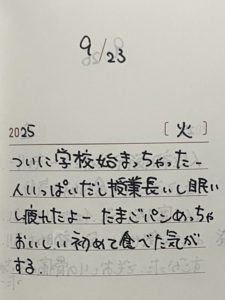 9/23
2025 [火]
ついに学校始まっちゃったー
人いっぱいだし授業長いし眠い
し疲れたよー たまごパンめっちゃ
おいしい初めて食べた気が
する.